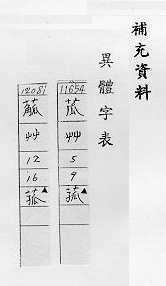 補充資料
異體字表
11654
苽
艸
5
9
菰▲
12081
艸
12
16
菰▲